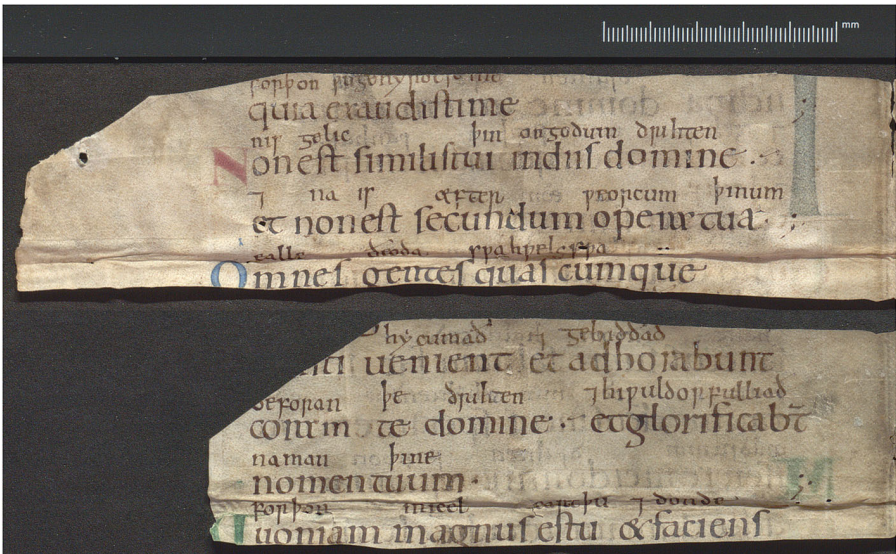 mm
forþon þu gehyrdest me
quia exaudisti me
nis gelic þin on godum drihten
Non est similis tui in diis domine
⁊ na is æfter weorcum þinum
et non est secundum opera tua
ealle ðeoda swa hwelc swa
Omnes gentes quascumque
hy cumað ⁊ gebiddað
uenient et adhorabunt
beforan þe drihten ⁊ hi wuldorfulliað
coram te domine et glorificabt̄
naman þine
nomen tuum
forþon micel eart þu ⁊ donde
Quoniam magnus es tu & faciens